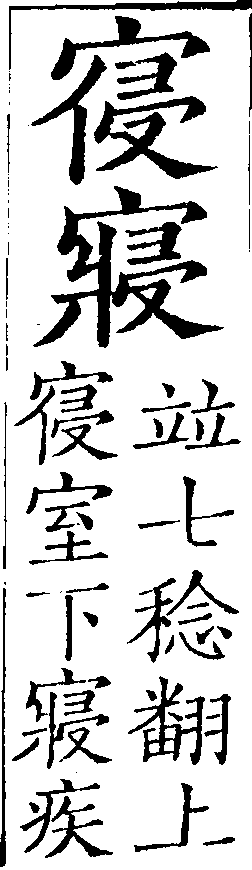 寑
寢
竝七稔翻上
寑室下寢疾